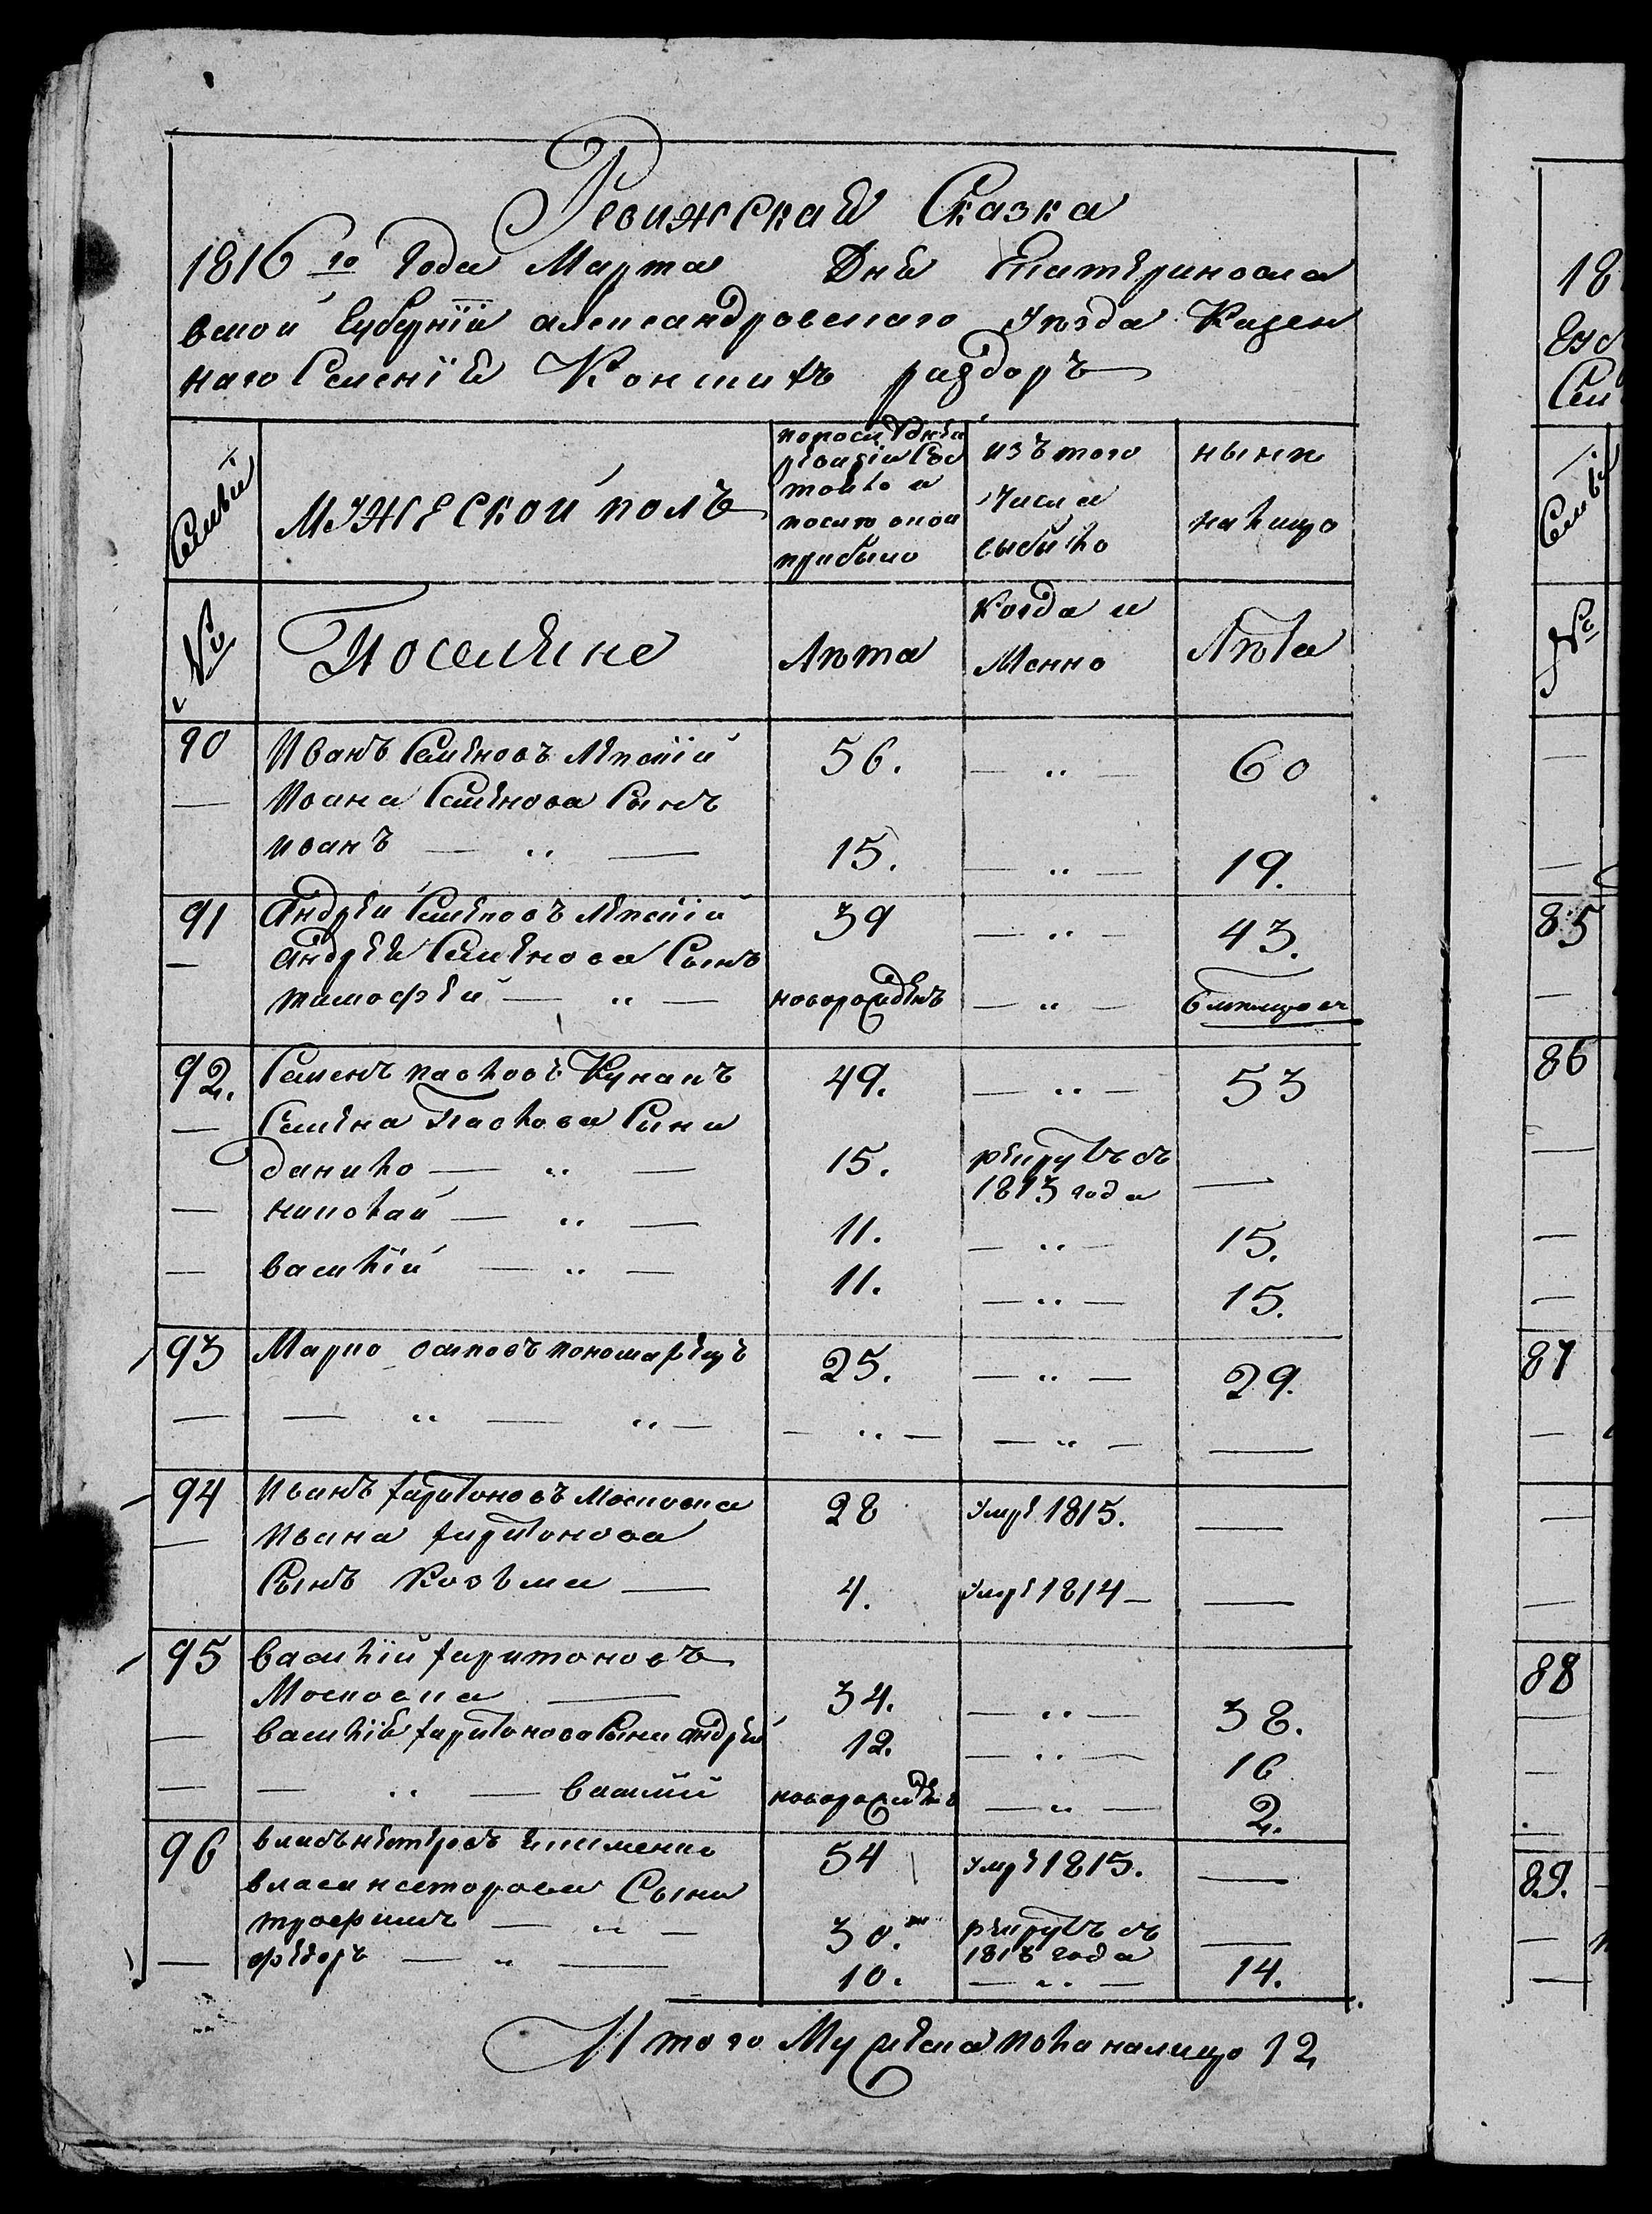 Ревижская Сказка
1816го Года Марта Дня Екатериносла
вской Губернїи александровскаго уѣзда Казен
наго Селенїя Конскихъ раздоръ
Семьи
Мужескои полъ
попоследней
ревизіи Сос
тояло и
после оной
прибыло
изъ того
числа
выбыло
ныне
налицо
№
Поселяне
Лѣта
когда и
Менно
Лѣта
90 Иванъ Семеновъ Лепскїй 56. — „ — 60
— Ивана Семенова Сынъ
иванъ — „ — 15. — „ — 19.
91 Андрей Семеновъ Лепскїй 39 — „ — 43.
— андрея Семенова Сынъ
тимофей — „ — новорожденъ — „ —
92. Семенъ павловъ Кунапъ 49. — „ — 53
— Семена Павлова Сини
данило — „ — 15. рекрутъ съ
1813 года —
— николай — „ — 11. — „ — 15.
— василїй — „ — 11. — „ — 15.
93 Марко осиповъ пономарецъ 25. — „ — 29.
— — „ — „ — — „ — — „ — —
94 Иванъ харитоновъ Московка 28 умре 1815. —
— Ивана харитонова
Сынъ Козьма — 4. умре 1814 — —
95 василїй харитоновъ
Московка — 34. — „ — 38.
— василїя харитонова Сыни андрей 12. — „ — 16
— — „ — василїй новорожденъ — „ — 2.
96 власъ несторовъ 54 умре 1815. —
власа несторова Сыни
трофимъ — „ — 30. рекрутъ съ
1813 года —
— федоръ — „ — 10. — „ — 14.
Итого Мужеска пола налицо 12
18
Семьи
№
85
86
87
88
89.